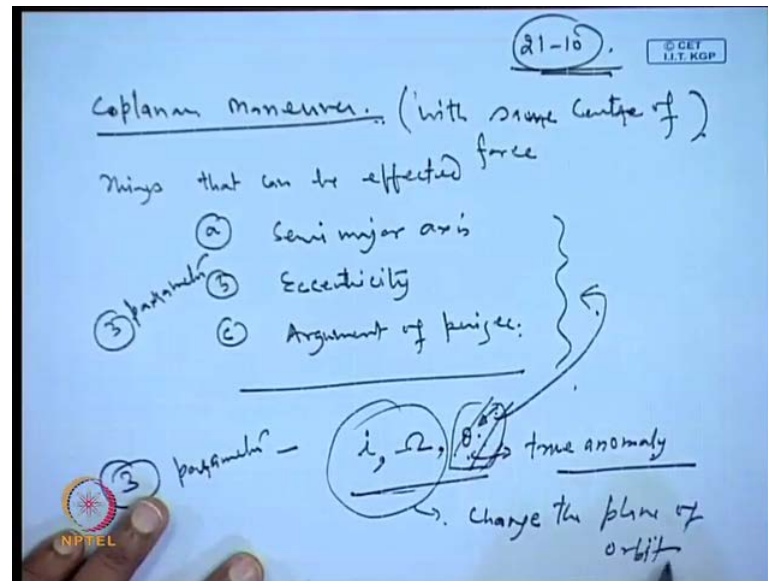 21-10.
© CET
I.I.T. KGP
Coplanar Maneuver. (with same Centre of)
force
Things that can be effected
(a) Semi major axis
(b) Eccentricity
(c) Argument of perigee.
(3) parameter
(3) parameter - i, Ω, θ → true anomaly
change the plane of
orbit
NPTEL